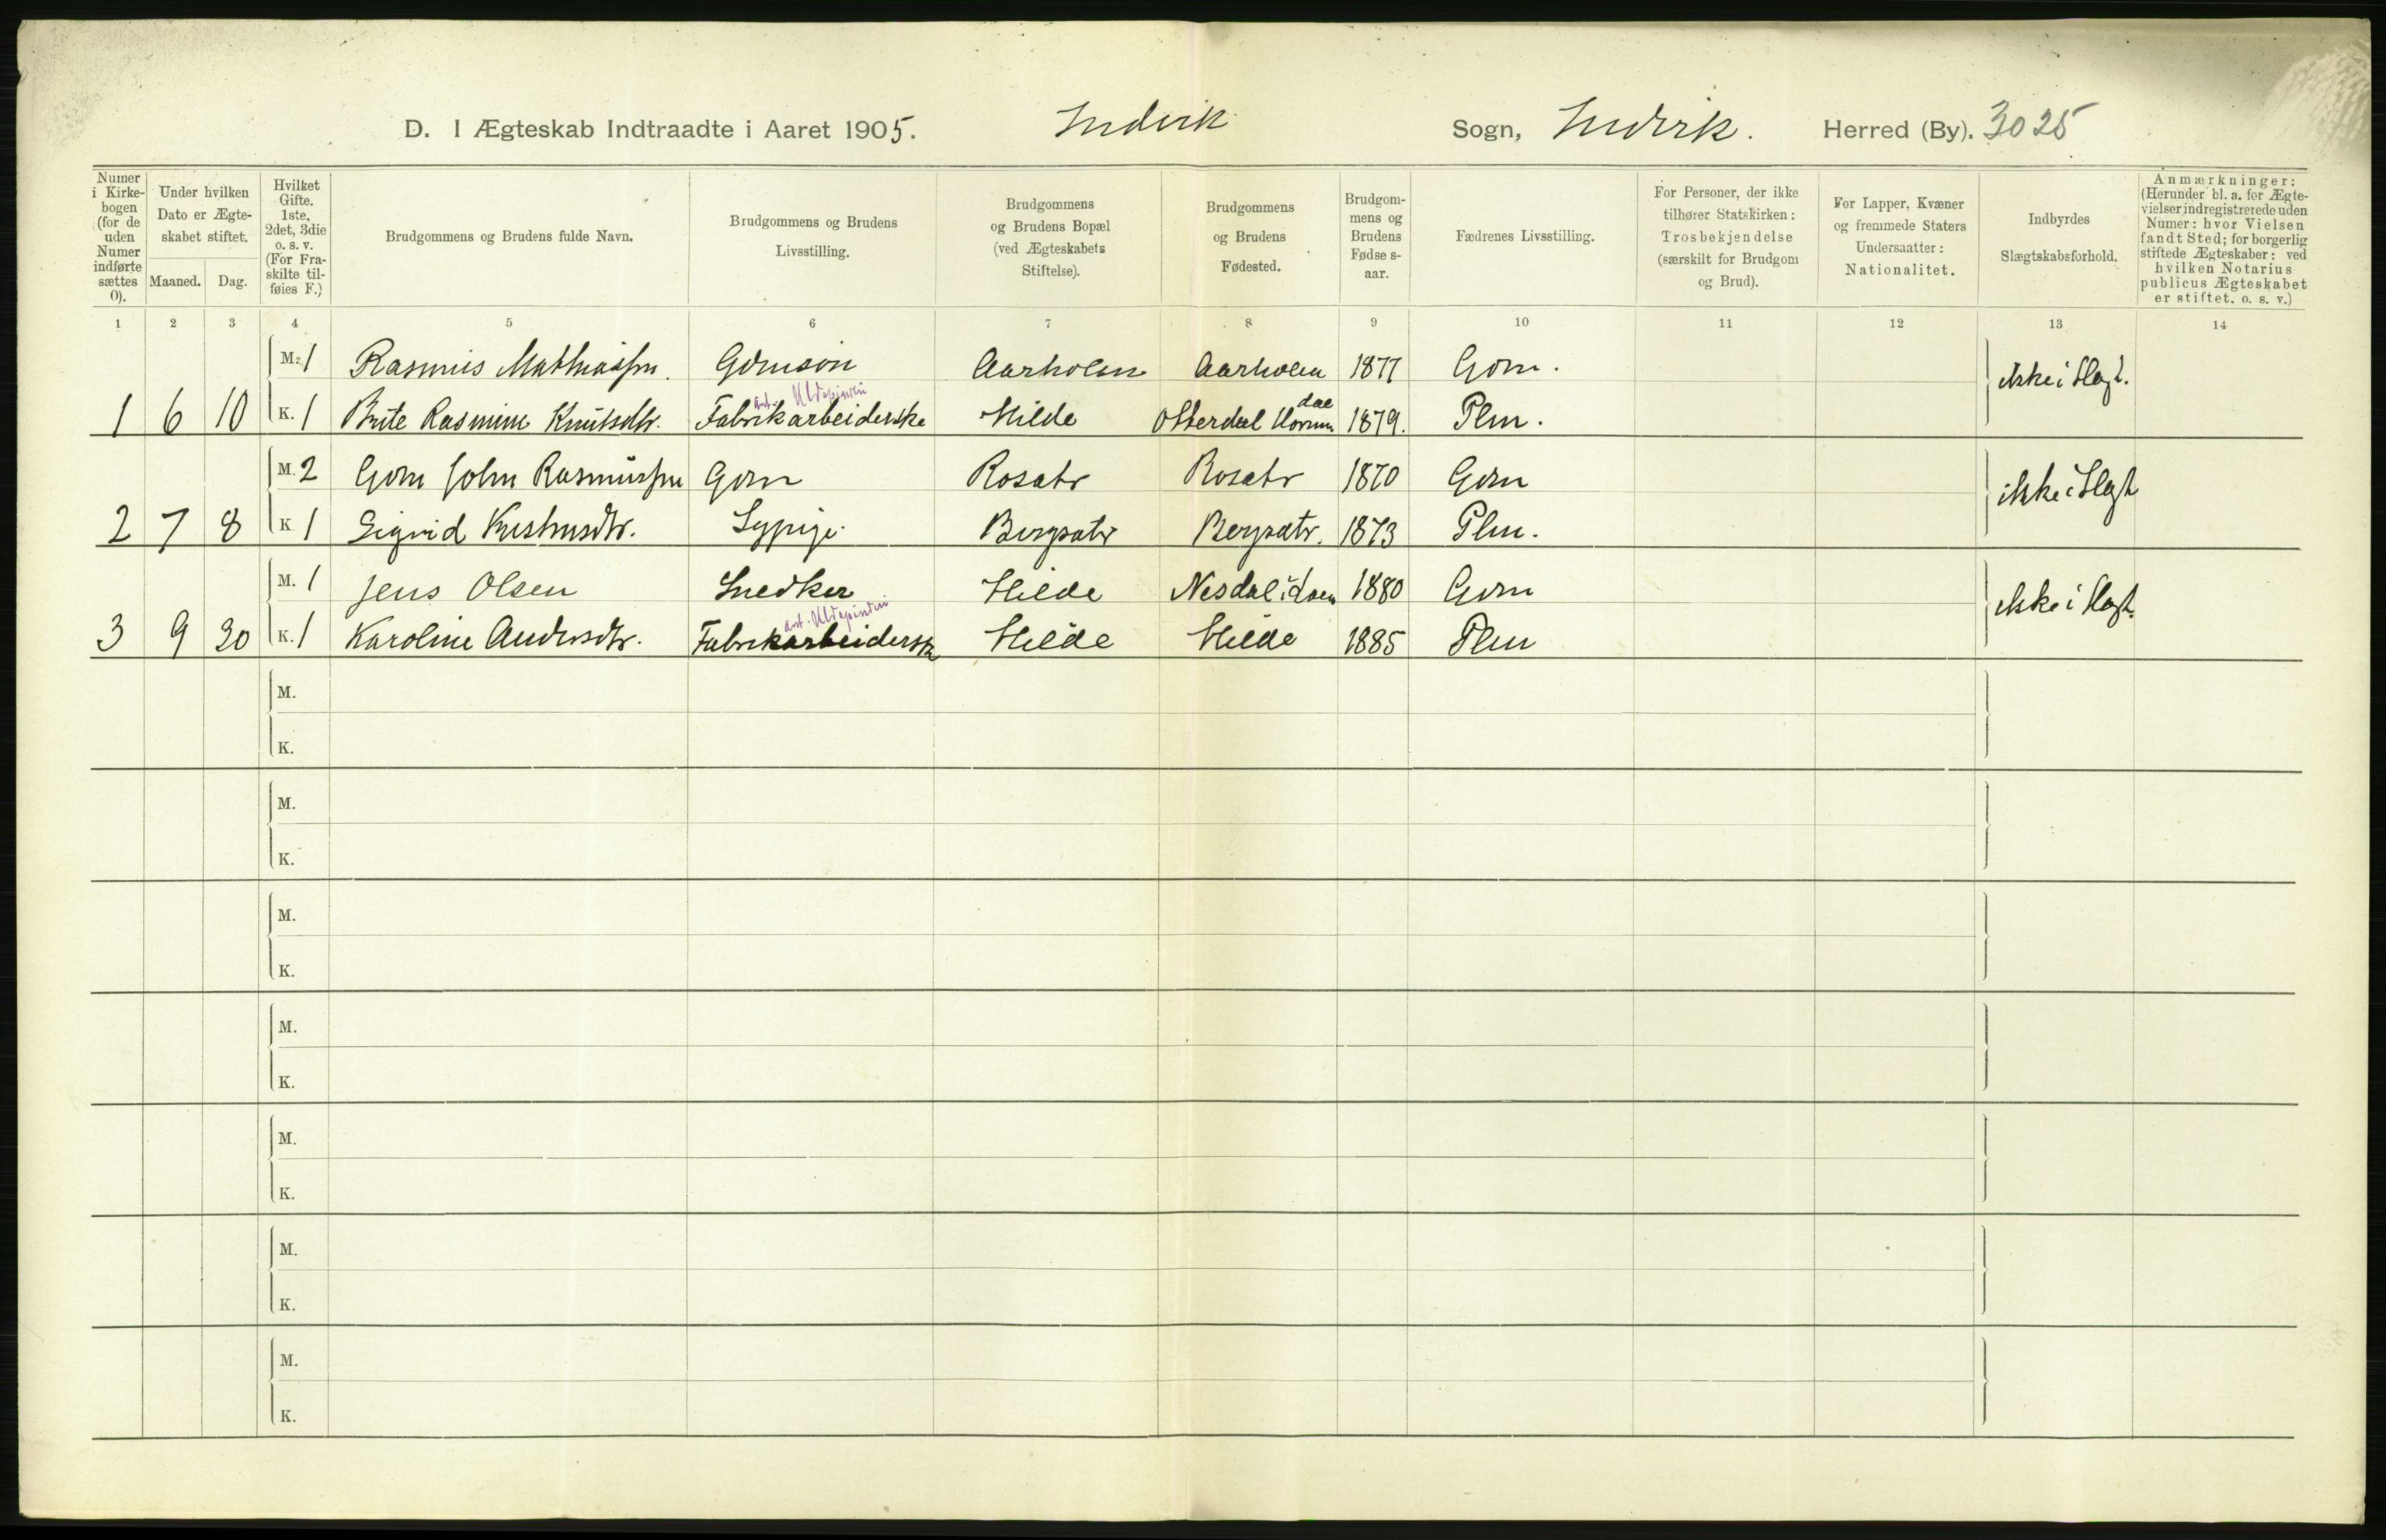 D. I Ægteskab Indtraadte i Aaret 1905. Indvik Sogn, Indvik. Herred (By). 3025
Numer i Kirkebogen (for de uden Numer indførte sættes 0).
Under hvilken Dato er Ægteskabet stiftet.
Maaned. Dag.
Hvilket Gifte. 1ste, 2det, 3die o. s. v. (For Fraskilte tilføies F.)
Brudgommens og Brudens fulde Navn.
Brudgommens og Brudens Livsstilling.
Brudgommens og Brudens Bopæl (ved Ægteskabets Stiftelse).
Brudgommens og Brudens Fødested.
Brudgommens og Brudens Fødse s-aar.
Fædrenes Livsstilling.
For Personer, der ikke tilhører Statskirken: Trosbekjendelse (særskilt for Brudgom og Brud).
For Lapper, Kvæner og fremmede Staters Undersaatter: Nationalitet.
Indbyrdes Slægtskabsforhold.
Anmærkninger: (Herunder bl. a. for Ægtevielser indregistrerede uden Numer: hvor Vielsen fandt Sted; for borgerlig stiftede Ægteskaber: ved hvilken Notarius publicus Ægteskabet er stiftet. o. s. v.)
1 2 3 4 5 6 7 8 9 10 11 12 13 14
M. 1 Rasmus Mathiassen. Gdmsøn Aarholen Aarholen 1877 Gdm. ikke i Slegt.
ant. Uldspinderi dal
1 6 10 K. 1 Brite Rasmine Knutsdtr. Fabrikarbeiderske Hilde Otterdal Hornin 1879. Plm.
M. 2 Gdm John Rasmussen Gdm Rosætr Rosætr 1870 Gdm ikke i Slegt
2 7 8 K. 1 Sigrid Kristensdtr. Sypige Bergsætr Bergsætr. 1873 Plm.
M. 1 Jens Olsen Snedker Hilde Nesdal i Loen 1880 Gdm ikke i Slegt.
ant. Uldspinderi
3 9 30 K. 1 Karoline Andersdtr. Fabrikarbeiderske Hilde Hilde 1885 Plm
M.
K.
M.
K.
M.
K.
M.
K.
M.
K.
M.
K.
M.
K.